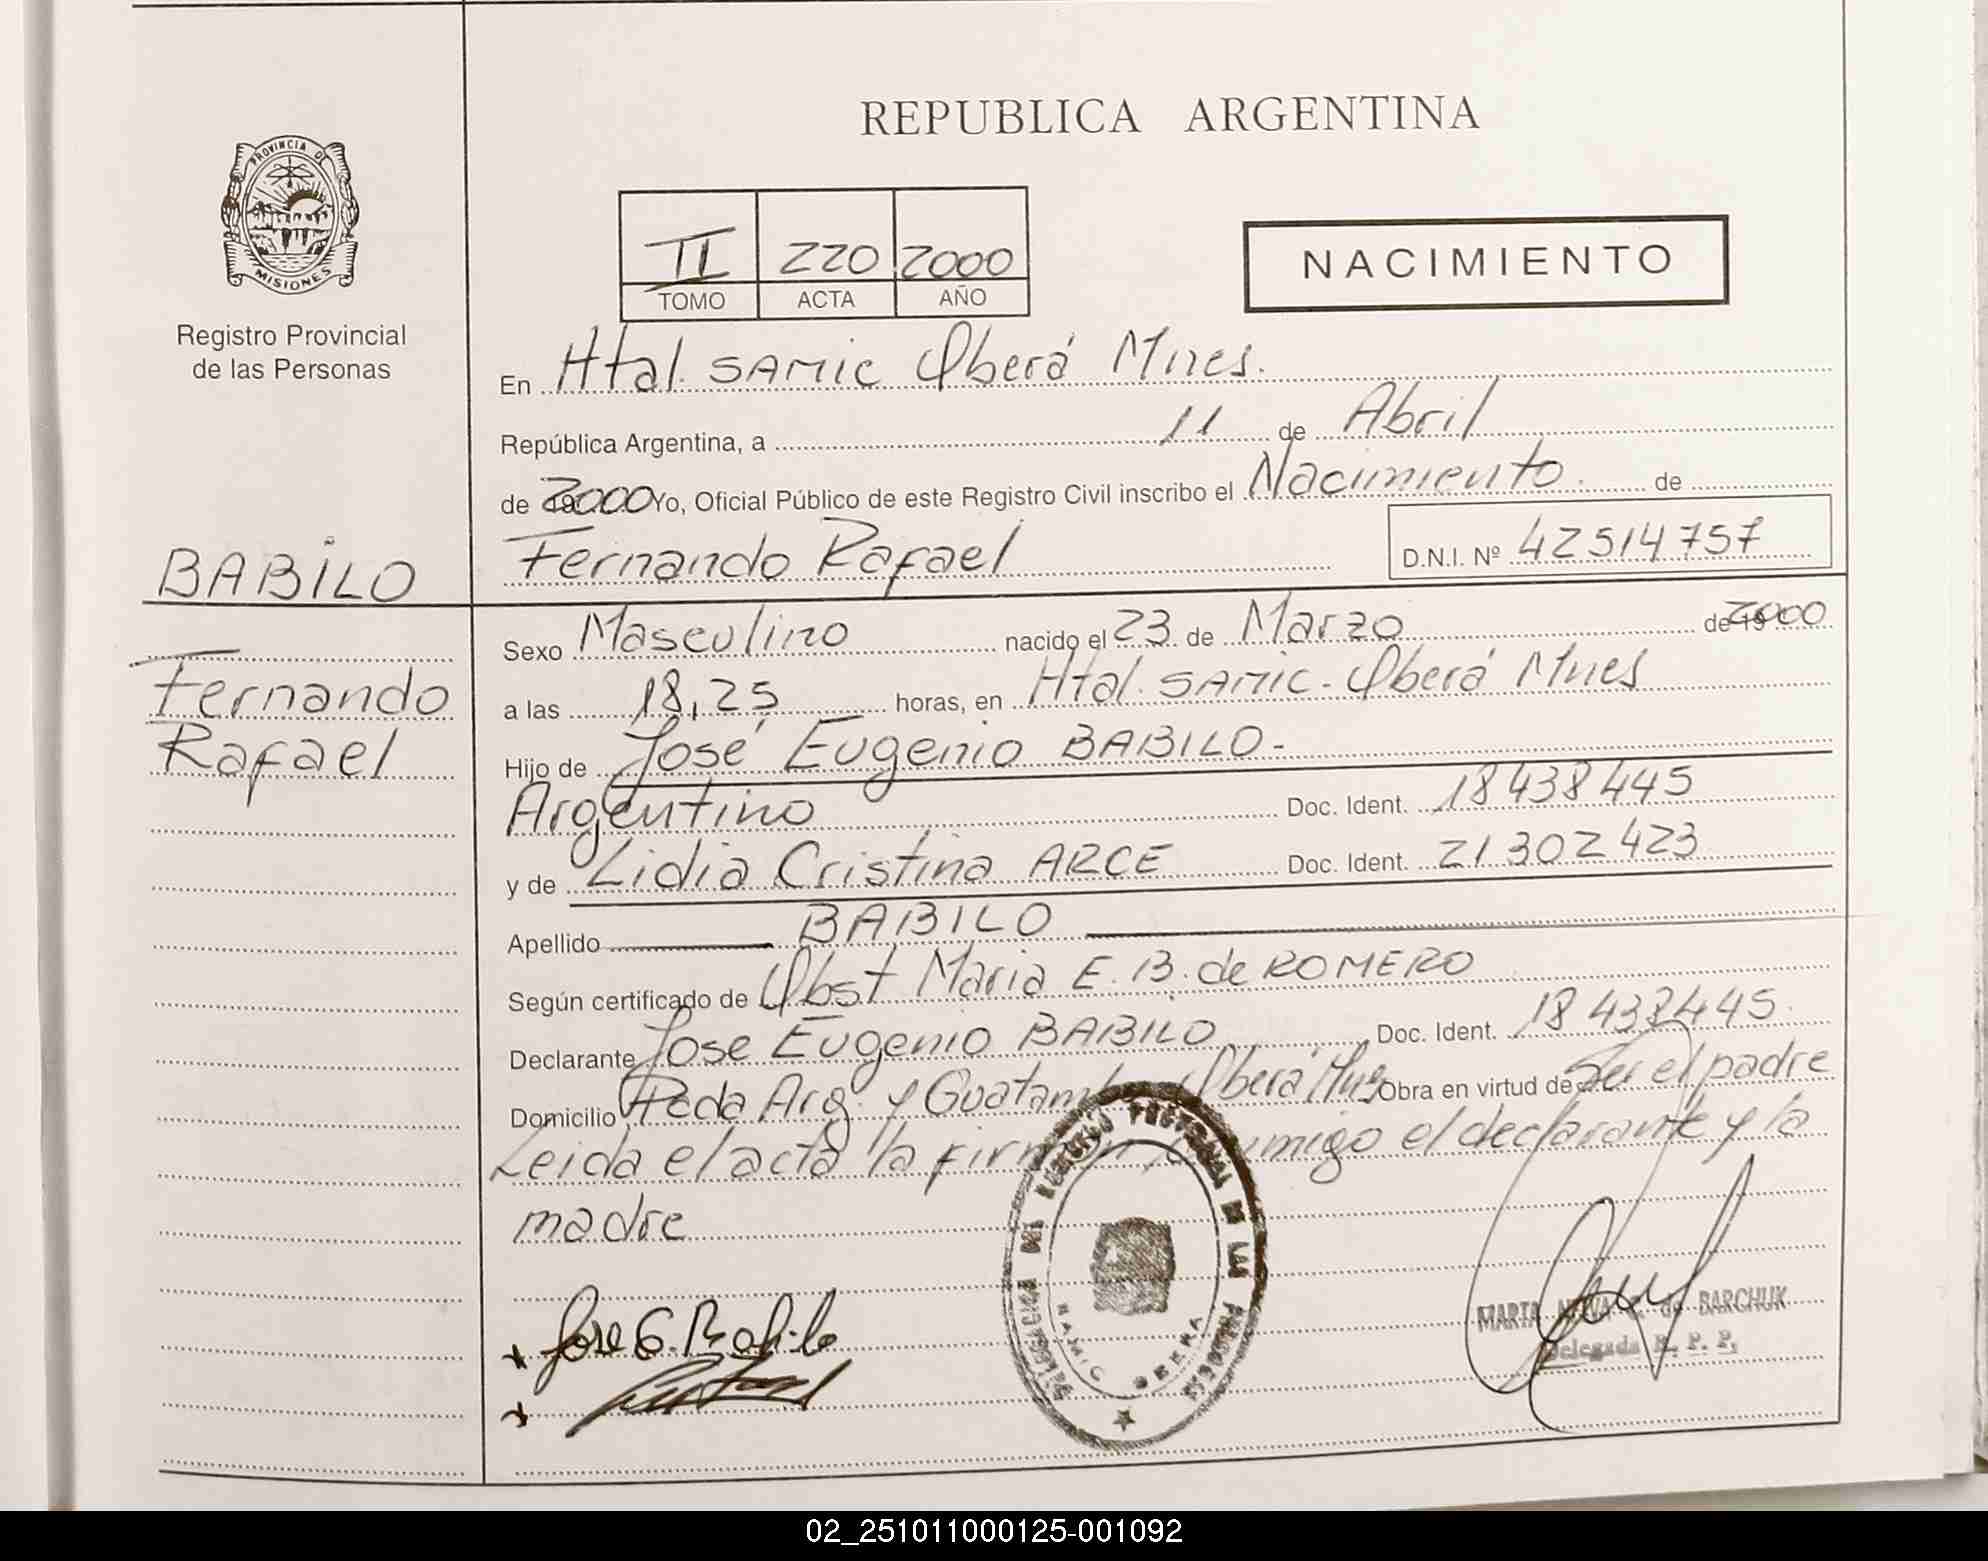 REPUBLICA ARGENTINA
PROVINCIA DE
MISIONES
Registro Provincial
de las Personas
II 220 2000
TOMO ACTA AÑO
NACIMIENTO
En Htal. SAMIC Oberá Mnes.
República Argentina, a 11 de Abril
de 2000 Yo, Oficial Público de este Registro Civil inscribo el Nacimiento de
BABILO
Fernando Rafael D.N.I. Nº 42514757
Sexo Masculino nacido el 23 de Marzo de 2000
Fernando
Rafael
a las 18,25 horas, en Htal. SAMIC - Oberá Mnes
Hijo de José Eugenio BABILO-
Argentino Doc. Ident. 18438445
y de Lidia Cristina ARCE Doc. Ident. 21302423
Apellido BABILO
Según certificado de Obst Maria E. B. de ROMERO
Declarante Jose Eugenio BABILO Doc. Ident. 18438445
Domicilio Arg. y Oberá Obra en virtud de Ser el padre
Leida el acta la el declarante y la
madre
Jose E. Babilo
BARCHUK
Delegada R. P. P.
02_251011000125-001092